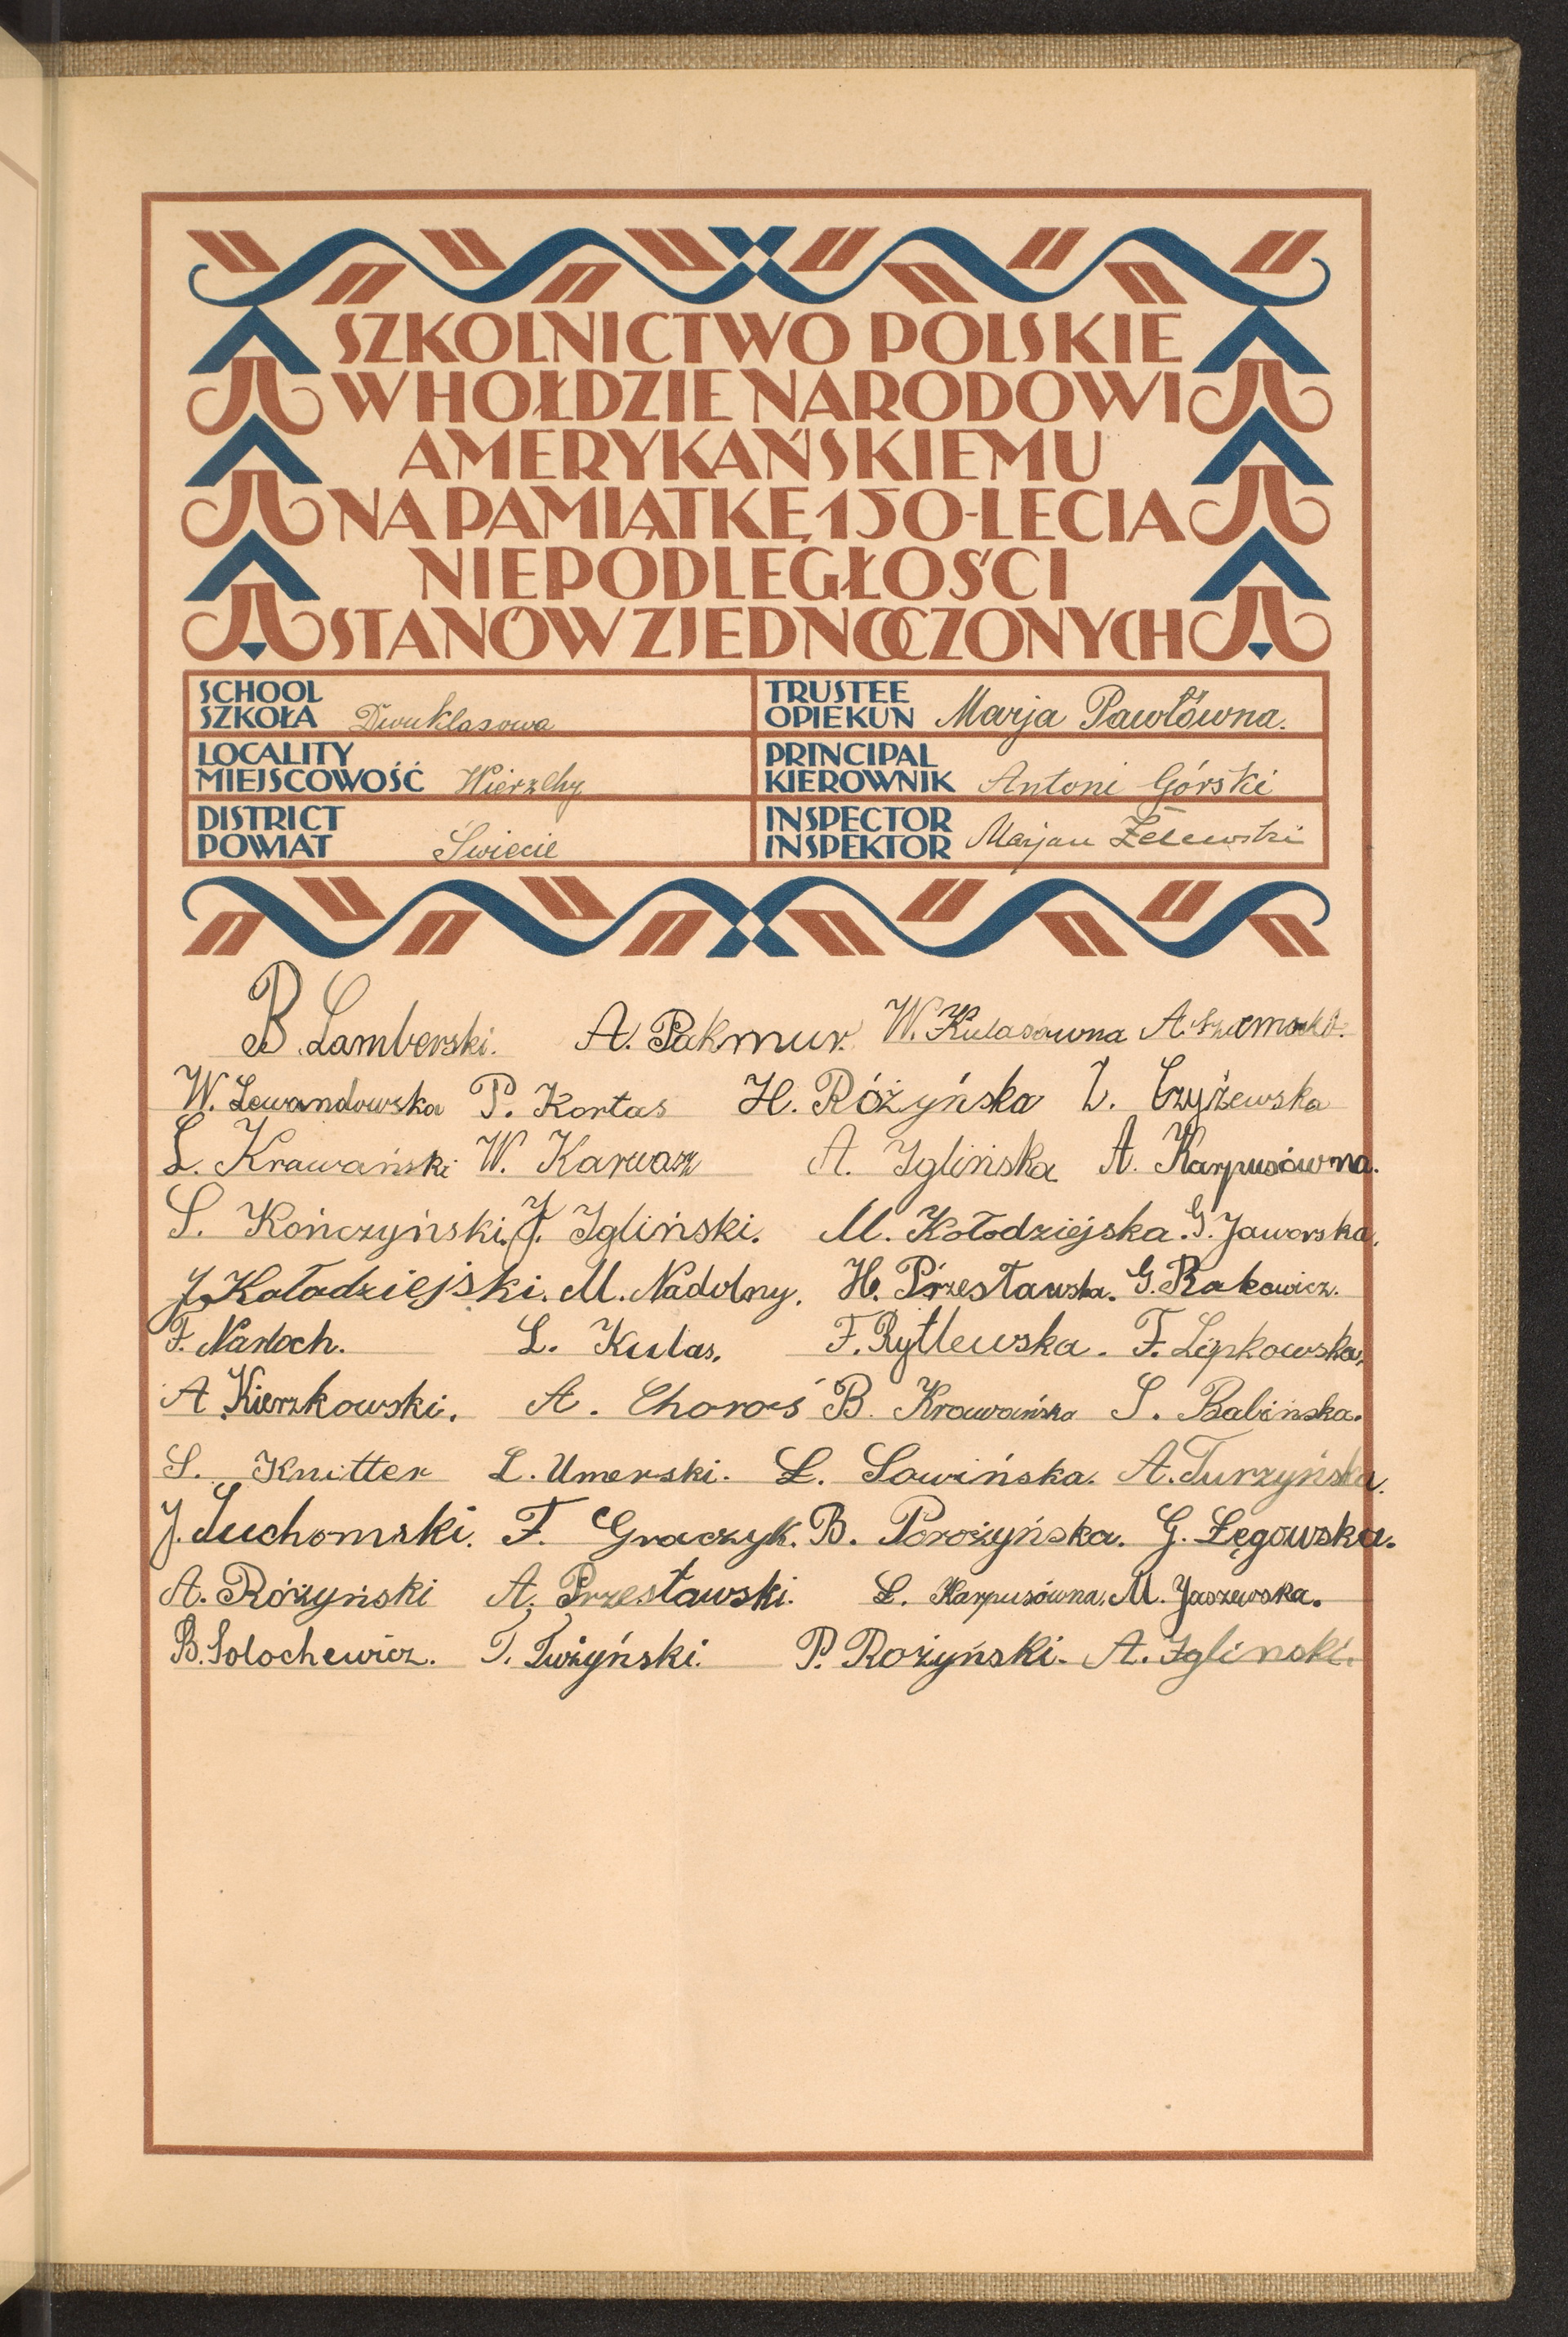 SZKOLNICTWO POLSKIE
W HOŁDZIE NARODOWI
AMERYKAŃSKIEMU
NA PAMIĄTKĘ 150-LECIA
NIEPODLEGŁOŚCI
STANÓW ZJEDNOCZONYCH
SCHOOL
SZKOŁA Dwuklasowa
TRUSTEE
OPIEKUN Marja Pawłówna.
LOCALITY
MIEJSCOWOŚĆ Wierzchy
PRINCIPAL
KIEROWNIK Antoni Górski
DISTRICT
POWIAT Świecie
INSPECTOR
INSPEKTOR Marjan Żelewski
B. Lamberski. A. Pakmur. W. Kulasówna A.
W. Lewandowska P. Kortas H. Różyńska Z. Czyżewska
L. Krawański W. Karwasz A. Iglińska A. Karpusówna.
S. Kończyński. J. Igliński. M. Kołodziejska. G. Jaworska.
J. Kołodziejski. M. Nadolny. H. Przesławska. G. Rakowicz.
F. Narloch. L. Kulas. F. Rytlewska. F. Lipkowska.
A Kierzkowski. A. Choroś B. Krawańska S. Babińska.
S. Knitter L. Umerski. Ł. Sowińska. A. Turzyńska.
J. Suchomski. F. Graczyk. B. Porożyńska. G. Łęgowska.
A. Różyński A. Przesławski. Ł. Karpusówna. M. Jaszewska.
B. Solochewicz. T. Tużyński. P. Rożyński. A. Iglinski.